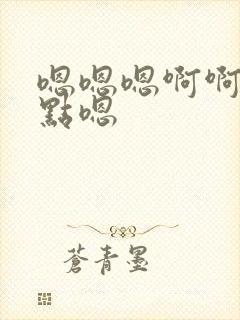 嗯嗯嗯啊啊
點嗯
蒼青墨